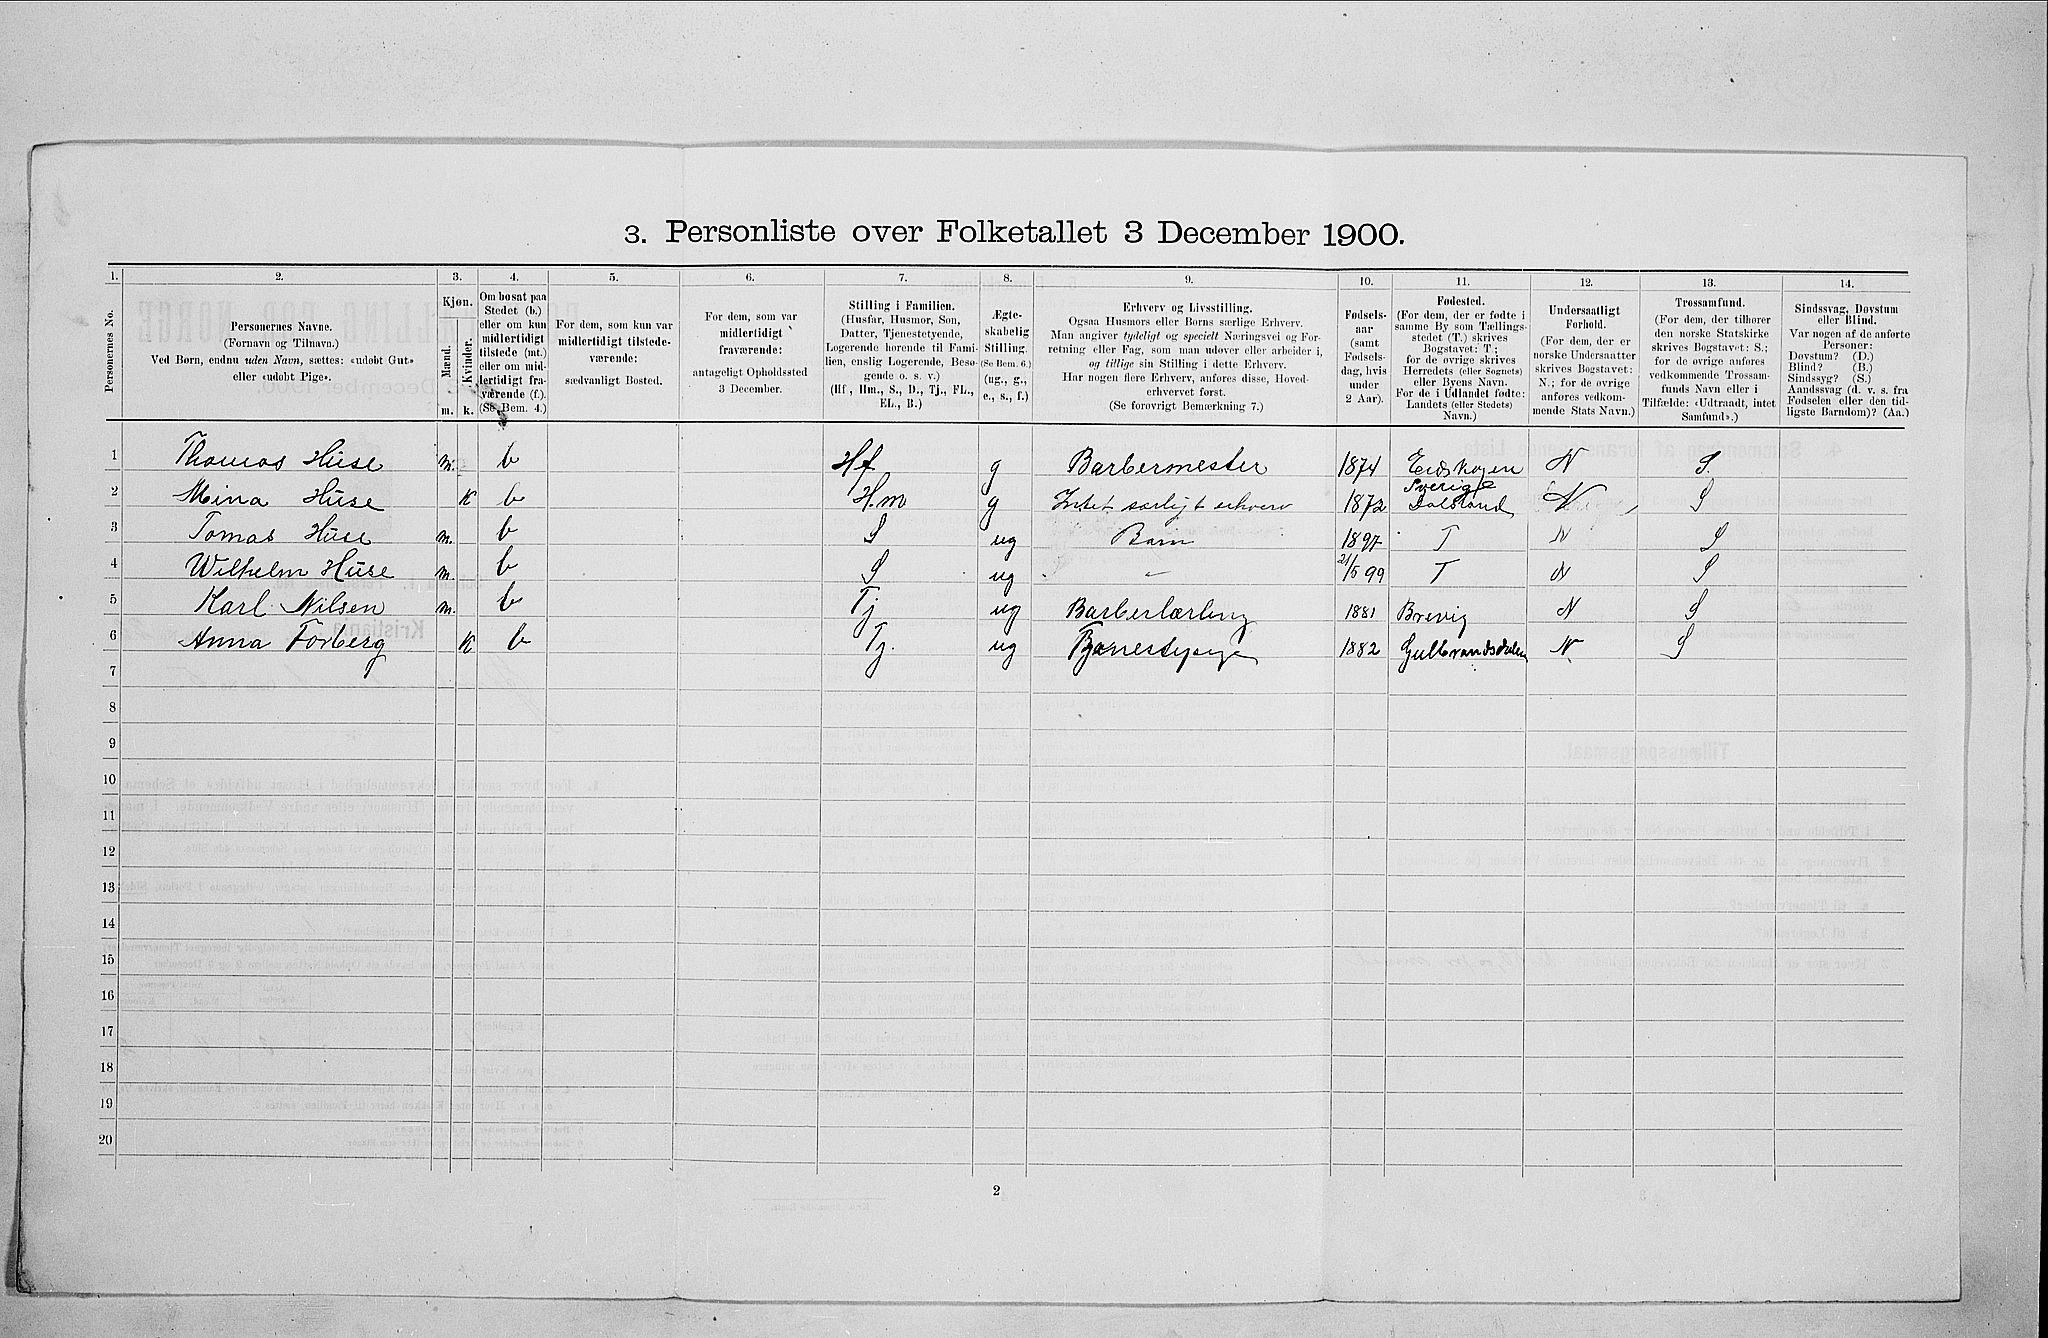 3. Personliste over Folketallet 3 December 1900.
1. 2. 3. 4. 5. 6. 7. 8. 9. 10. 11. 12. 13. 14.
Personernes No.
Personernes Navne.
(Fornavn og Tilnavn.)
Ved Børn, endnu uden Navn, sættes: «udøbt Gut»
eller «udøbt Pige».
Kjøn.
Mænd.
Kvinder.
m. k.
Om bosat paa
Stedet (b.)
eller om kun
midlertidigt
tilstede (mt.)
eller om mid-
lertidigt fra-
værende (f.).
(Se Bem. 4.)
For dem, som kun var
midlertidigt tilstede-
værende:
sædvanligt Bosted.
For dem, som var
midlertidigt
fraværende:
antageligt Opholdssted
3 December.
Stilling i Familien.
(Husfar, Husmor, Søn,
Datter, Tjenestetyende,
Logerende hørende til Fami-
lien, enslig Logerende, Besø-
gende o. s. v.)
(Hf, Hm., S., D., Tj., FL.,
EL., B.)
Ægte-
skabelig
Stilling.
(Se Bem. 6.)
(ug., g.,
e., s., f.)
Erhverv og Livsstilling.
Ogsaa Husmors eller Børns særlige Erhverv.
Man angiver tydeligt og specielt Næringsvei og For-
retning eller Fag, som man udøver eller arbeider i,
og tillige sin Stilling i dette Erhverv.
Har nogen flere Erhverv, anføres disse, Hoved-
erhvervet først.
(Se forøvrigt Bemærkning 7.)
Fødsels-
aar
(samt
Fødsels-
dag, hvis
under
2 Aar).
Fødested.
(For dem, der er fødte i
samme By som Tællings-
stedet (T.) skrives
Bogstavet: T.;
for de øvrige skrives
Herredets (eller Sognets)
eller Byens Navn.
For de i Udlandet fødte:
Landets (eller Stedets)
Navn.)
Undersaatligt
Forhold.
(For dem, der er
norske Undersaatter
skrives Bogstavet:
N.; for de øvrige
anføres vedkom-
mende Stats Navn.)
Trossamfund.
(For dem, der tilhører
den norske Statskirke
skrives Bogstavet: S.;
for de øvrige anføres
vedkommende Trossam-
funds Navn eller i
Tilfælde: «Udtraadt, intet
Samfund».)
Sindssvag, Døvstum
eller Blind.
Var nogen af de anførte
Personer:
Døvstum? (D.)
Blind? (B.)
Sindssyg? (S.)
Aandssvag (d. v. s. fra
Fødselen eller den tid-
ligste Barndom)? (Aa.)
1 Thomas Huse m. b Hf g Barbermester 1874 Eidskogen N S.
2 Mina Huse K b H.m g Intet særligt erhverv 1872 Sverige Dalsland N S
3 Tomas Huse m. b S ug Barn 1897 T N S
4 Wilhelm Huse m. b S ug " 21/5 99 T N S
5 Karl Nilsen m. b Tj ug Barberlærling 1881 Brevig N S
6 Anna Forberg K b Tj. ug Tjenestepige 1882 Gulbrandsdalen N S
7
8
9
10
11
12
13
14
15
16
17
18
19
20
2